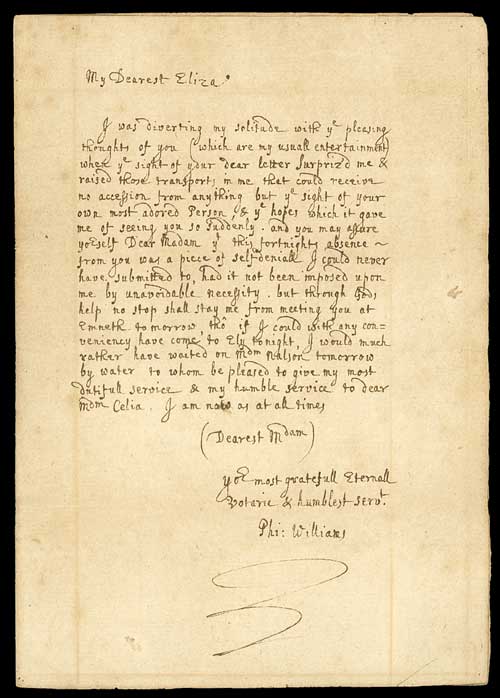 My Dearest Eliza
I was diverting my solitude with yᵉ pleasing
thoughts of you (which are my usuall entertainment)
when yᵉ sight of your dear letter surprizd me &
raised those transports in me that could receive
no accession from anything but yᵉ sight of your
own most adored Person, & yᵉ hopes which it gave
me of seeing you so suddenly. and you may assure
yoʳself Dear Madam yᵗ this fortnights absence ~
from you was a piece of self-deniall I could never
have submitted to, had it not been imposed upon
me by unavoidable necessity. but through Gods
help no stop shall stay me from meeting you at
Emneth to morrow, thô if I could with any con-
veniency have come to Ely tonight, I would much
rather have waited on Mdm Nalson tomorrow
by water to whom be pleased to give my most
dutifull service & my humble service to dear
Mdm Celia. I am now as at all times
(Dearest Mdam)
yoʳ most gratefull Eternall
Votarie & humblest servᵗ.
Phi: Williams